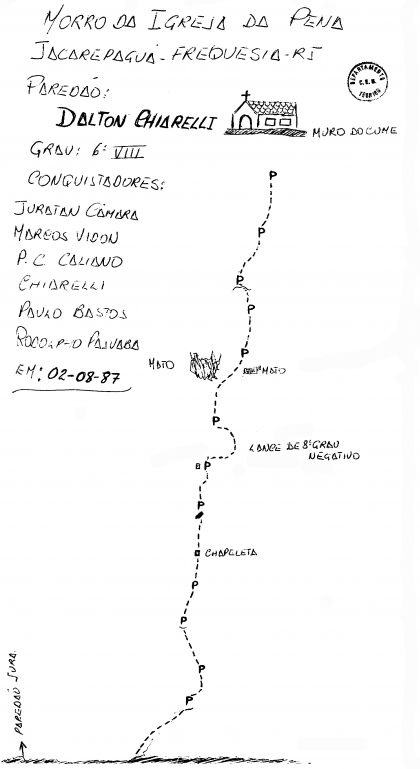 MORRO DA IGREJA DA PENA
JACAREPAGUÁ - FREQUESIA - RJ
PAREDÃO:
DALTON CHIARELLI
GRAU: 6º VIII
CONQUISTADORES:
JURATAN CÂMARA
MARCOS VIDON
P. C. CALIANO
CHIARELLI
PAULO BASTOS
EM: 02-08-87
DEPARTAMENTO
C.E.R.
TÉCNICO
MURO DO CUME
P
P
P
P
P
MATO
MATO
P
LANCE DE 8º GRAU
NEGATIVO
P
P
CHAPELETA
P
P
P
P
PAREDÃO JURA